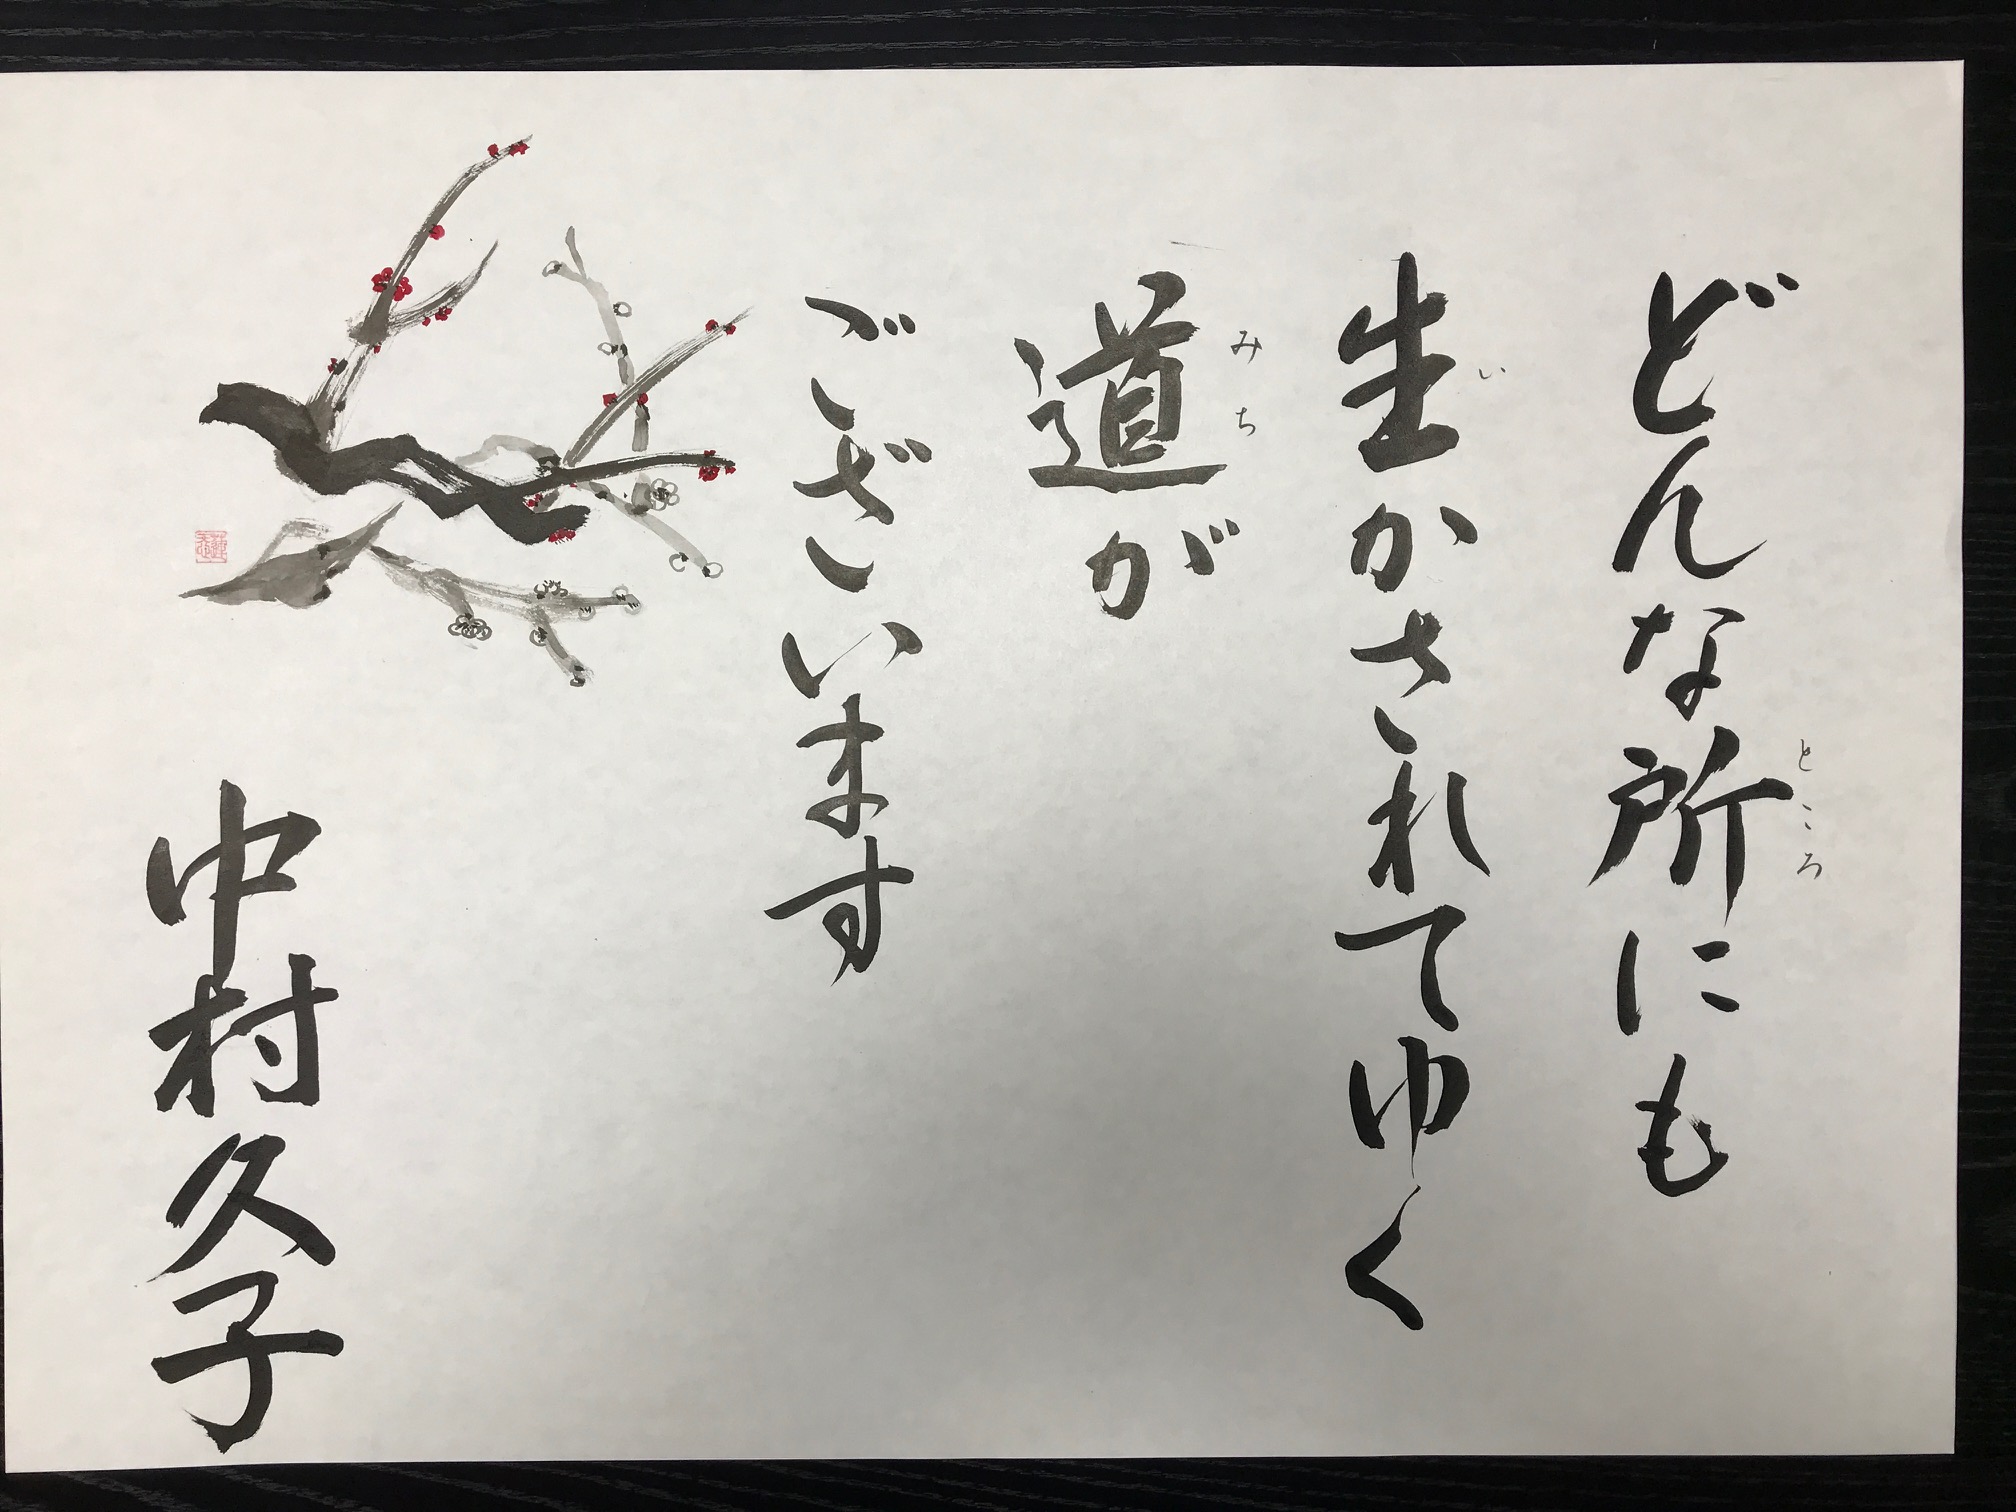 どんな所にも
ところ
生かされてゆく
い
道が
みち
ございます
中村久子